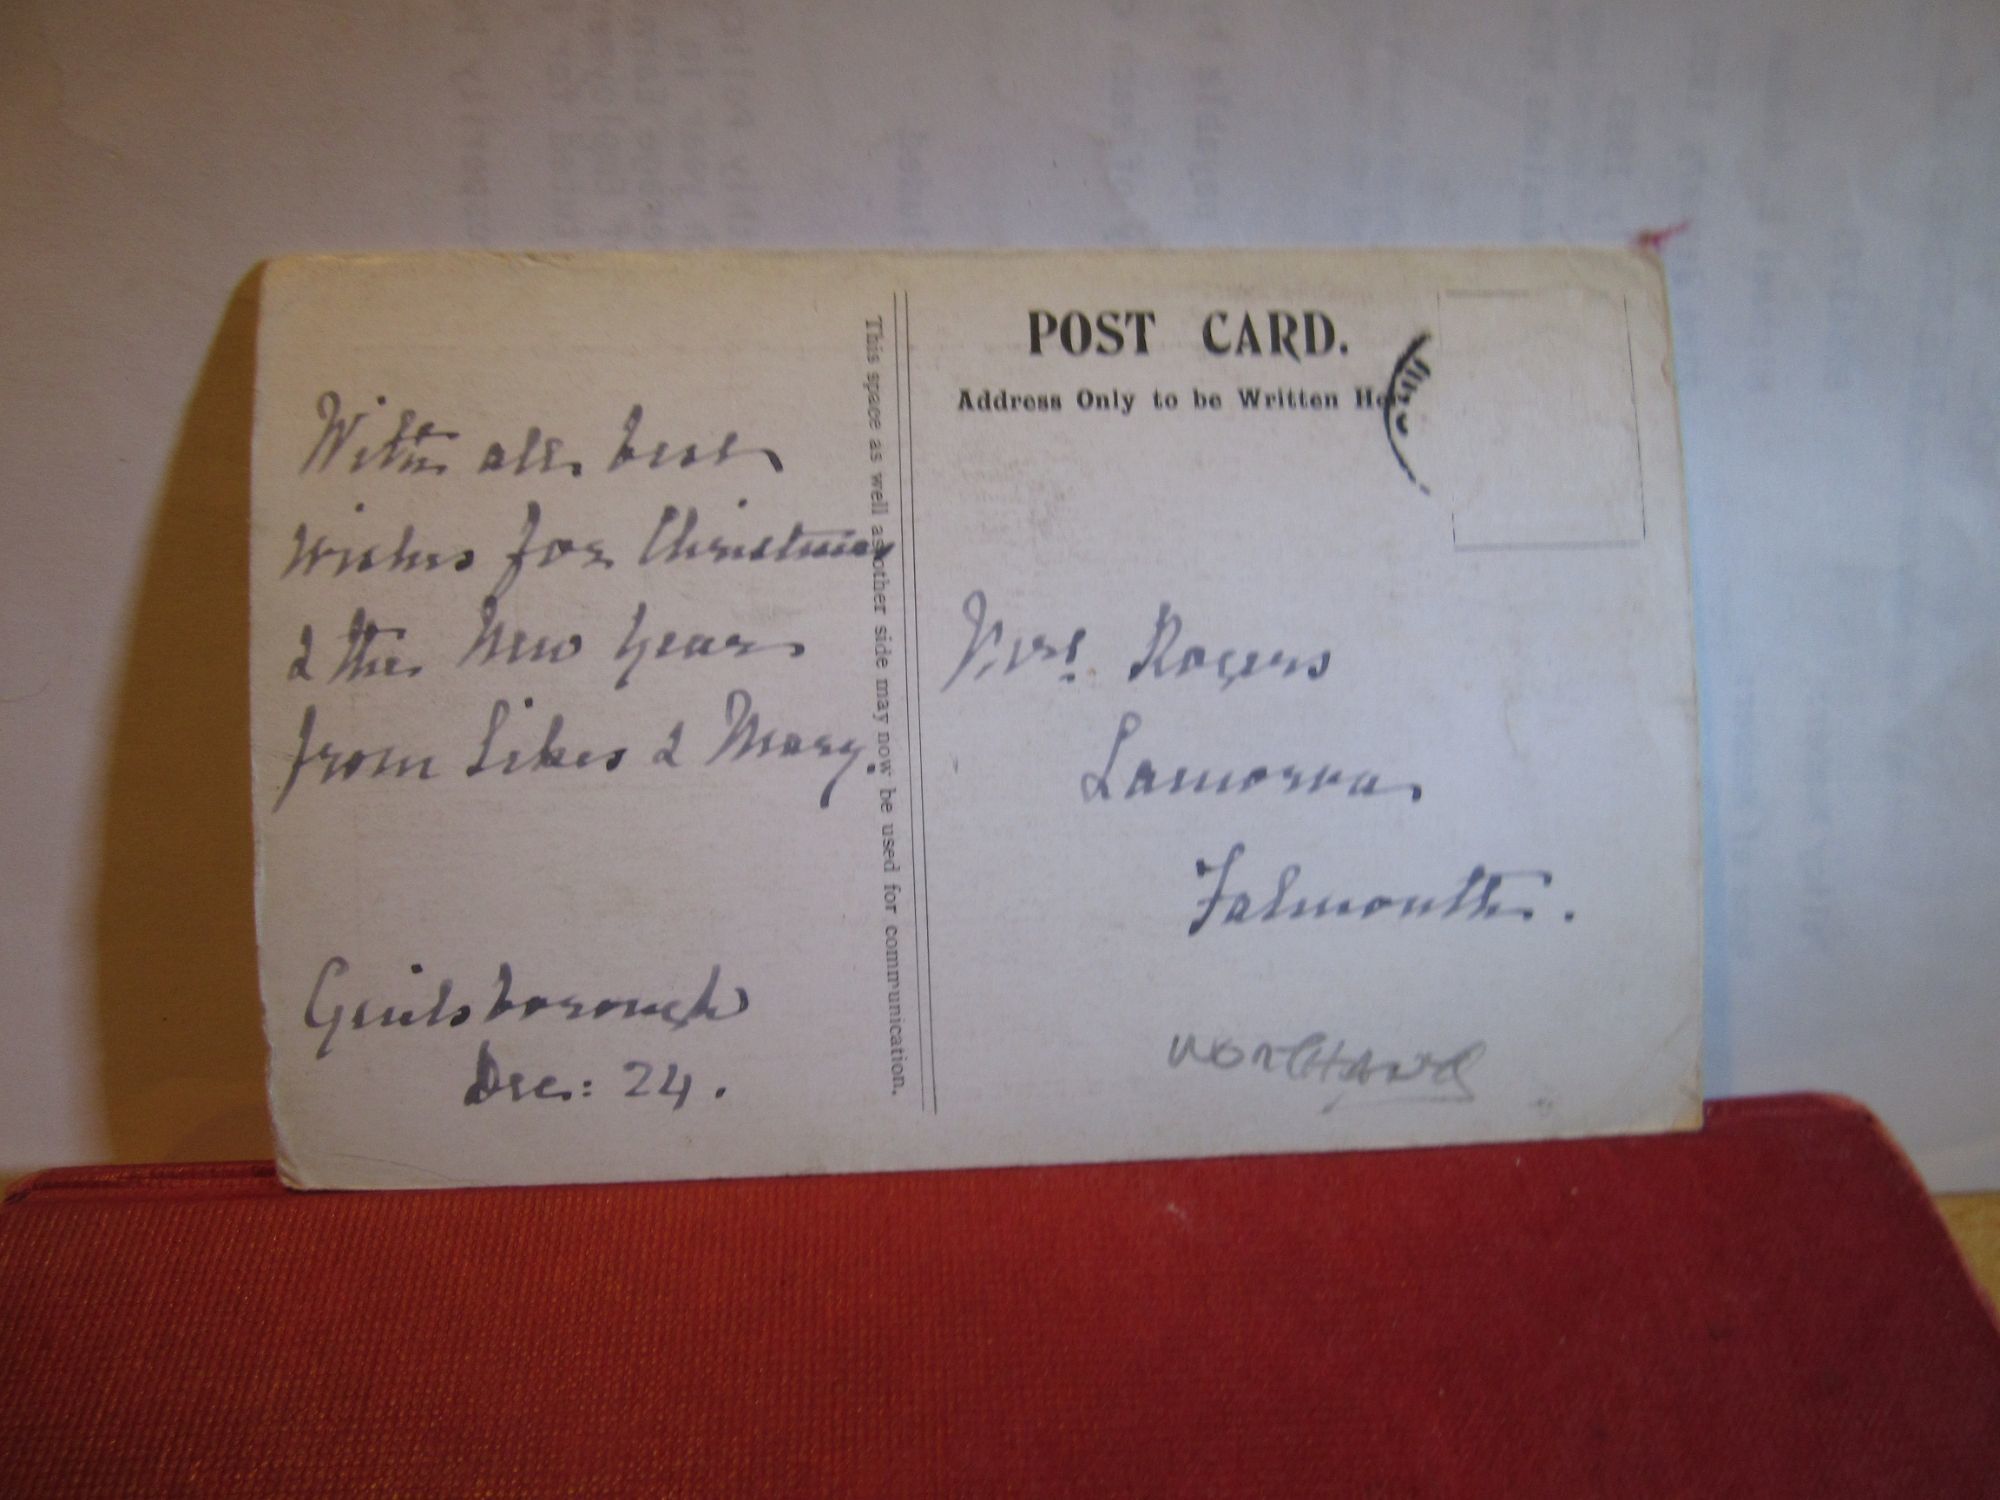 With all best
wishes for Christmas
& the New Year
from Sikes & Mary.
Guilsborough
Dec: 24.
This space as well as other side may now be used for communication.
POST CARD.
Address Only to be Written He
Mrs. Rogers
Lamorva
Falmouth.